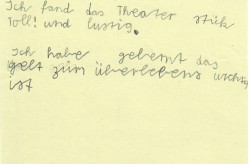 Ich fand das Theater stük
Toll! und lustig.
Ich habe gelernt das
gelt zum überlebens wichtig
ist